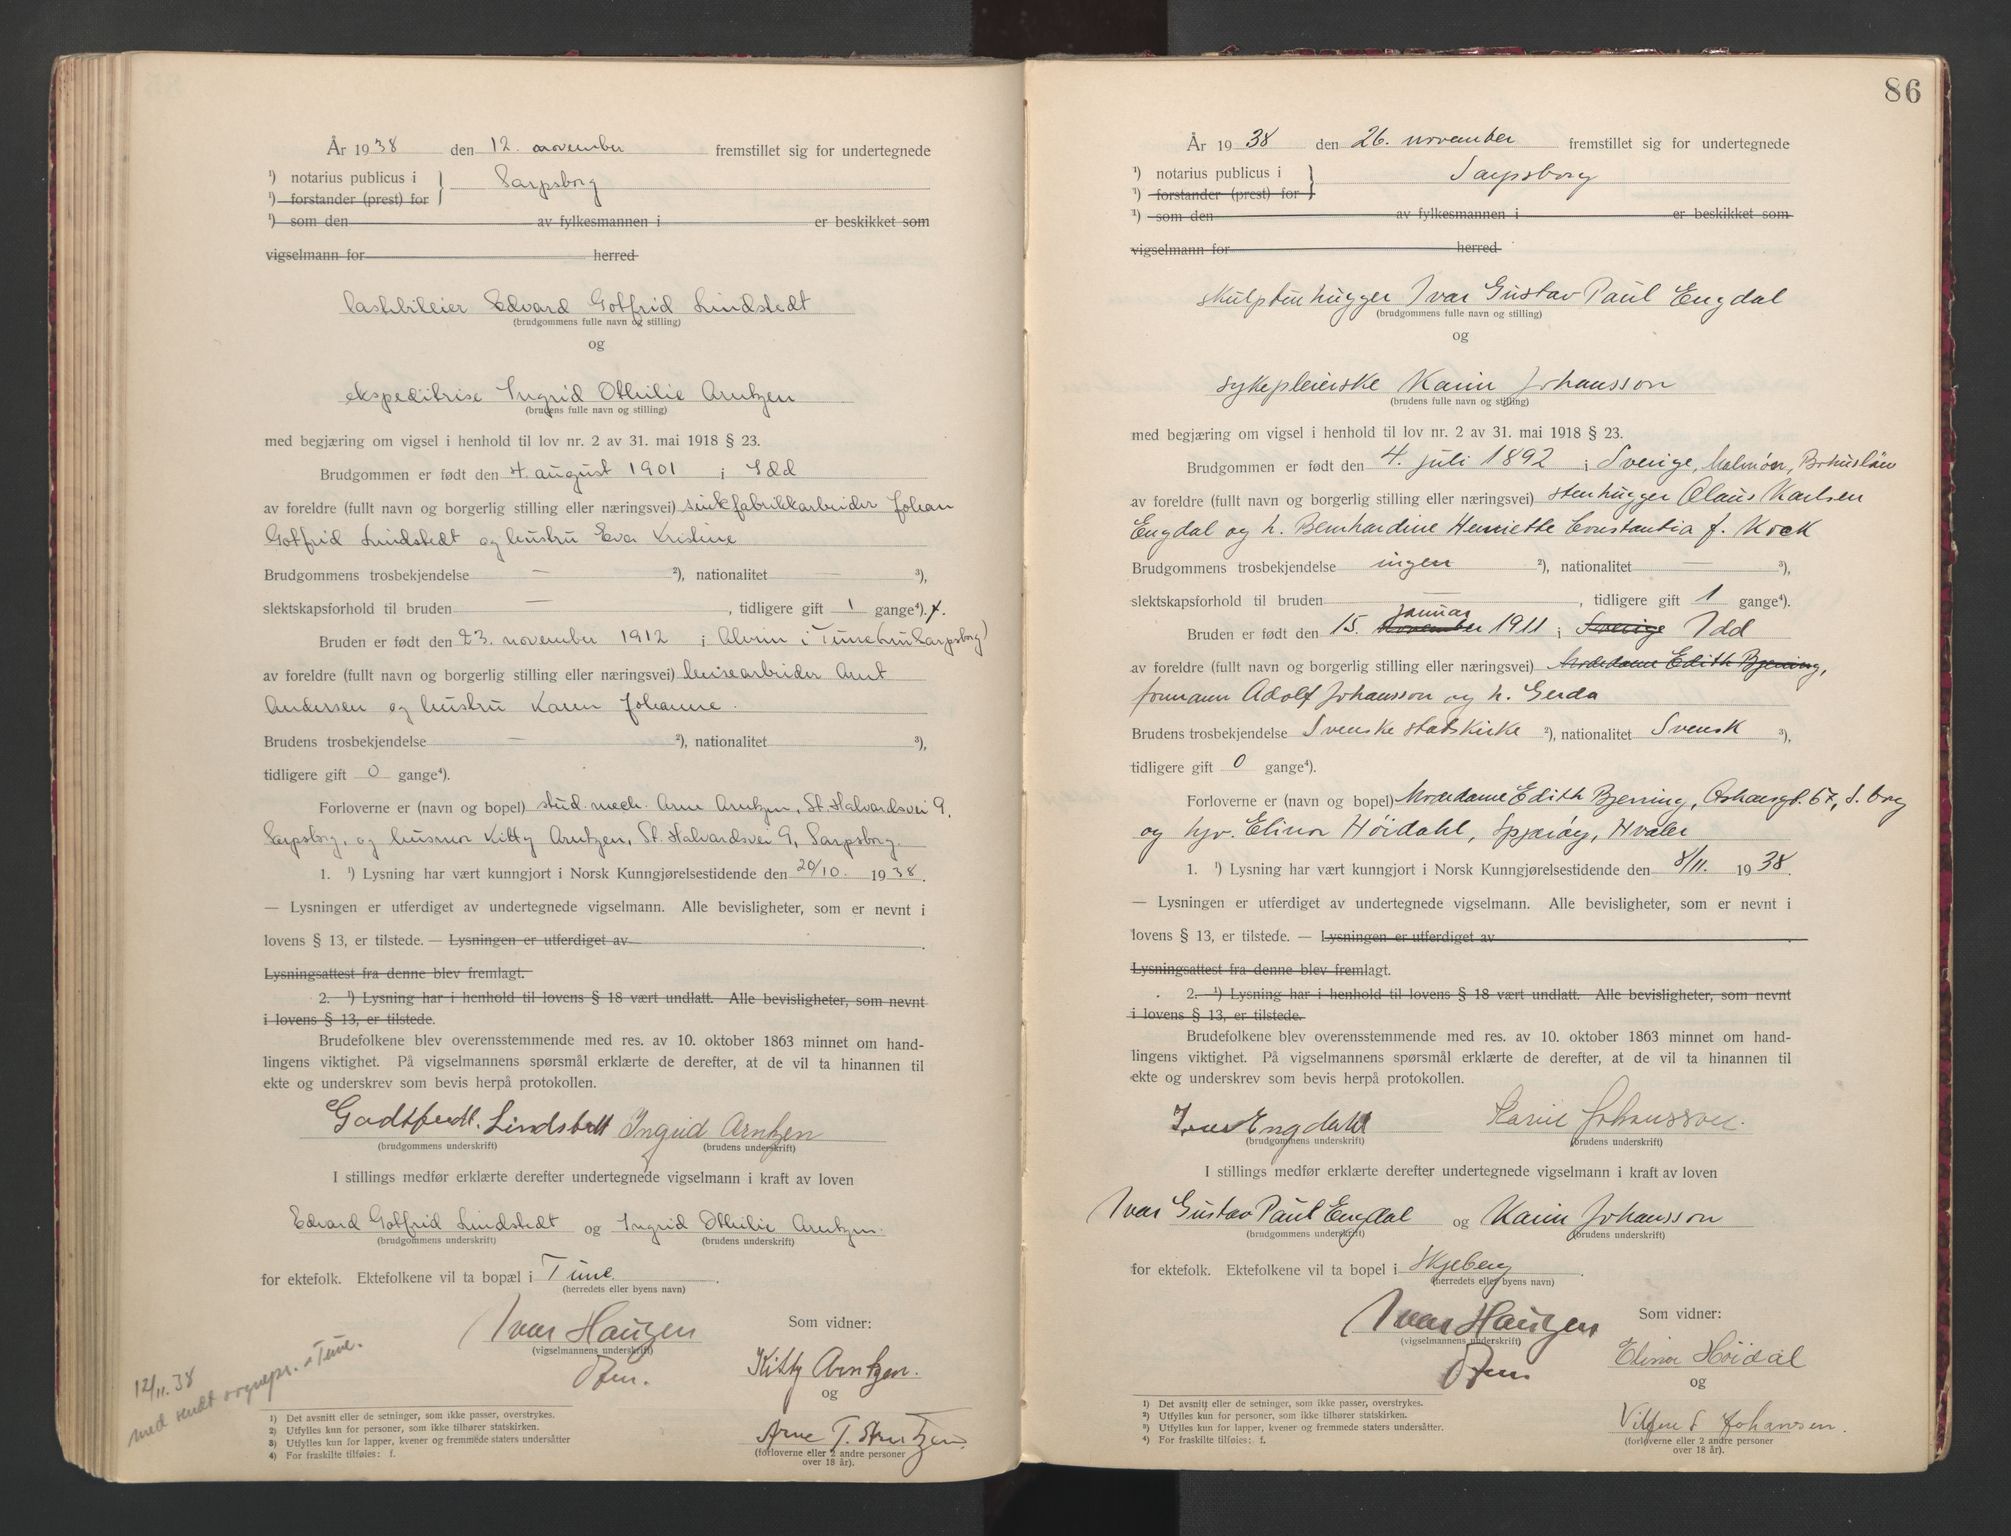 År 1938 den 12. november fremstillet sig for undertegnede
¹) notarius publicus i } Sarpsborg
¹) forstander (prest) for
¹) som den av fylkesmannen i er beskikket som
vigselmann for herred
lastebileier Edvard Gotfrid Lindstedt
(brudgommens fulle navn og stilling)
og
ekspeditrise Ingrid Othilie Arntzen
(brudens fulle navn og stilling)
med begjæring om vigsel i henhold til lov nr. 2 av 31. mai 1918 § 23.
Brudgommen er født den 4. august 1901 i Idd
av foreldre (fullt navn og borgerlig stilling eller næringsvei) sinkfabrikkarbeider Johan
Gotfrid Lindstedt og hustru Eva Kristine
Brudgommens trosbekjendelse — ²), nationalitet — ³),
slektskapsforhold til bruden — , tidligere gift 1 gange⁴). f.
Bruden er født den 23. november 1912 i Alvim i Tune (nu Sarpsborg)
av foreldre (fullt navn og borgerlig stilling eller næringsvei) leisearbeider Arnt
Andersen og hustru Karen Johanne.
Brudens trosbekjendelse — ²), nationalitet ³),
tidligere gift 0 gange⁴).
Forloverne er (navn og bopel) stud. mech. Arne Arntzen, St. Halvardsvei 9,
Sarpsborg, og husmor Kitty Arntzen, St. Halvardsvei 9, Sarpsborg.
1. ¹) Lysning har vært kunngjort i Norsk Kunngjørelsestidende den 20/10. 1938.
— Lysningen er utferdiget av undertegnede vigselmann. Alle bevisligheter, som er nevnt i
lovens § 13, er tilstede. — Lysningen er utferdiget av
Lysningsattest fra denne blev fremlagt.
2. ¹) Lysning har i henhold til lovens § 18 vært undlatt. Alle bevisligheter, som nevnt
i lovens § 13, er tilstede.
Brudefolkene blev overensstemmende med res. av 10. oktober 1863 minnet om hand-
lingens viktighet. På vigselmannens spørsmål erklærte de derefter, at de vil ta hinannen til
ekte og underskrev som bevis herpå protokollen.
Godtfredt. Lindstedt Ingrid Arntzen
(brudgommens underskrift) (brudens underskrift)
I stillings medfør erklærte derefter undertegnede vigselmann i kraft av loven
Edvard Gotfrid Lindstedt og Ingrid Othilie Arntzen.
(brudgommens underskrift) (brudens underskrift)
for ektefolk. Ektefolkene vil ta bopæl i Tune.
(herredets eller byens navn)
Ivar Hauzen
(vigselmannens underskrift)
Som vidner:
Kitty Arntzen.
og
Arne T. Arntzen.
(forloverne eller 2 andre personer
over 18 år).
12/11.38
med sendt sognepr. i Tune.
1) Det avsnitt eller de setninger, som ikke passer, overstrykes.
2) Utfylles kun for personer, som ikke tilhører statskirken.
3) Utfylles kun for lapper, kvener og fremmede staters undersåtter
4) For fraskilte tilføies: f.
86
År 1938 den 26. november fremstillet sig for undertegnede
¹) notarius publicus i } Sarpsborg
¹) forstander (prest) for
¹) som den av fylkesmannen i er beskikket som
vigselmann for herred
skulpturhugger Ivar Gustav Paul Engdal
(brudgommens fulle navn og stilling)
og
sykepleierske Karin Johansson
(brudens fulle navn og stilling)
med begjæring om vigsel i henhold til lov nr. 2 av 31. mai 1918 § 23.
Brudgommen er født den 4. juli 1892 i Sverige, Malmön, Bohuslän
av foreldre (fullt navn og borgerlig stilling eller næringsvei) stenhugger Olaus Karlsen
Engdal og h. Bernhardine Henriette Constantia f. Kock
Brudgommens trosbekjendelse ingen ²), nationalitet — ³),
slektskapsforhold til bruden — , tidligere gift 1 gange⁴).
Bruden er født den 15. november januar 1911 i Sverige Idd
av foreldre (fullt navn og borgerlig stilling eller næringsvei) Motedame Edith Bjerning,
formann Adolf Johansson og h. Gerda
Brudens trosbekjendelse Svenske statskirke ²), nationalitet Svensk ³),
tidligere gift 0 gange⁴).
Forloverne er (navn og bopel) Motedame Edith Bjerning, Oskarsgt. 67, S.borg
og hjv. Elinor Höidahl, Spjærøy, Hvaler
1. ¹) Lysning har vært kunngjort i Norsk Kunngjørelsestidende den 8/11. 1938.
— Lysningen er utferdiget av undertegnede vigselmann. Alle bevisligheter, som er nevnt i
lovens § 13, er tilstede. — Lysningen er utferdiget av
Lysningsattest fra denne blev fremlagt.
2. ¹) Lysning har i henhold til lovens § 18 vært undlatt. Alle bevisligheter, som nevnt
i lovens § 13, er tilstede.
Brudefolkene blev overensstemmende med res. av 10. oktober 1863 minnet om hand-
lingens viktighet. På vigselmannens spørsmål erklærte de derefter, at de vil ta hinannen til
ekte og underskrev som bevis herpå protokollen.
Ivar Engdahl Karin Johansson.
(brudgommens underskrift) (brudens underskrift)
I stillings medfør erklærte derefter undertegnede vigselmann i kraft av loven
Ivar Gustav Paul Engdal og Karin Johansson
(brudgommens underskrift) (brudens underskrift)
for ektefolk. Ektefolkene vil ta bopel i Skjeberg
(herredets eller byens navn)
Ivar Hauzen
(vigselmannens underskrift)
Som vidner:
Elinor Höidal
og
Johansen.
(forloverne eller 2 andre personer
over 18 år).
1) Det avsnitt eller de setninger, som ikke passer, overstrykes.
2) Utfylles kun for personer, som ikke tilhører statskirken.
3) Utfylles kun for lapper, kvener og fremmede staters undersåtter.
4) For fraskilte tilføies: f.